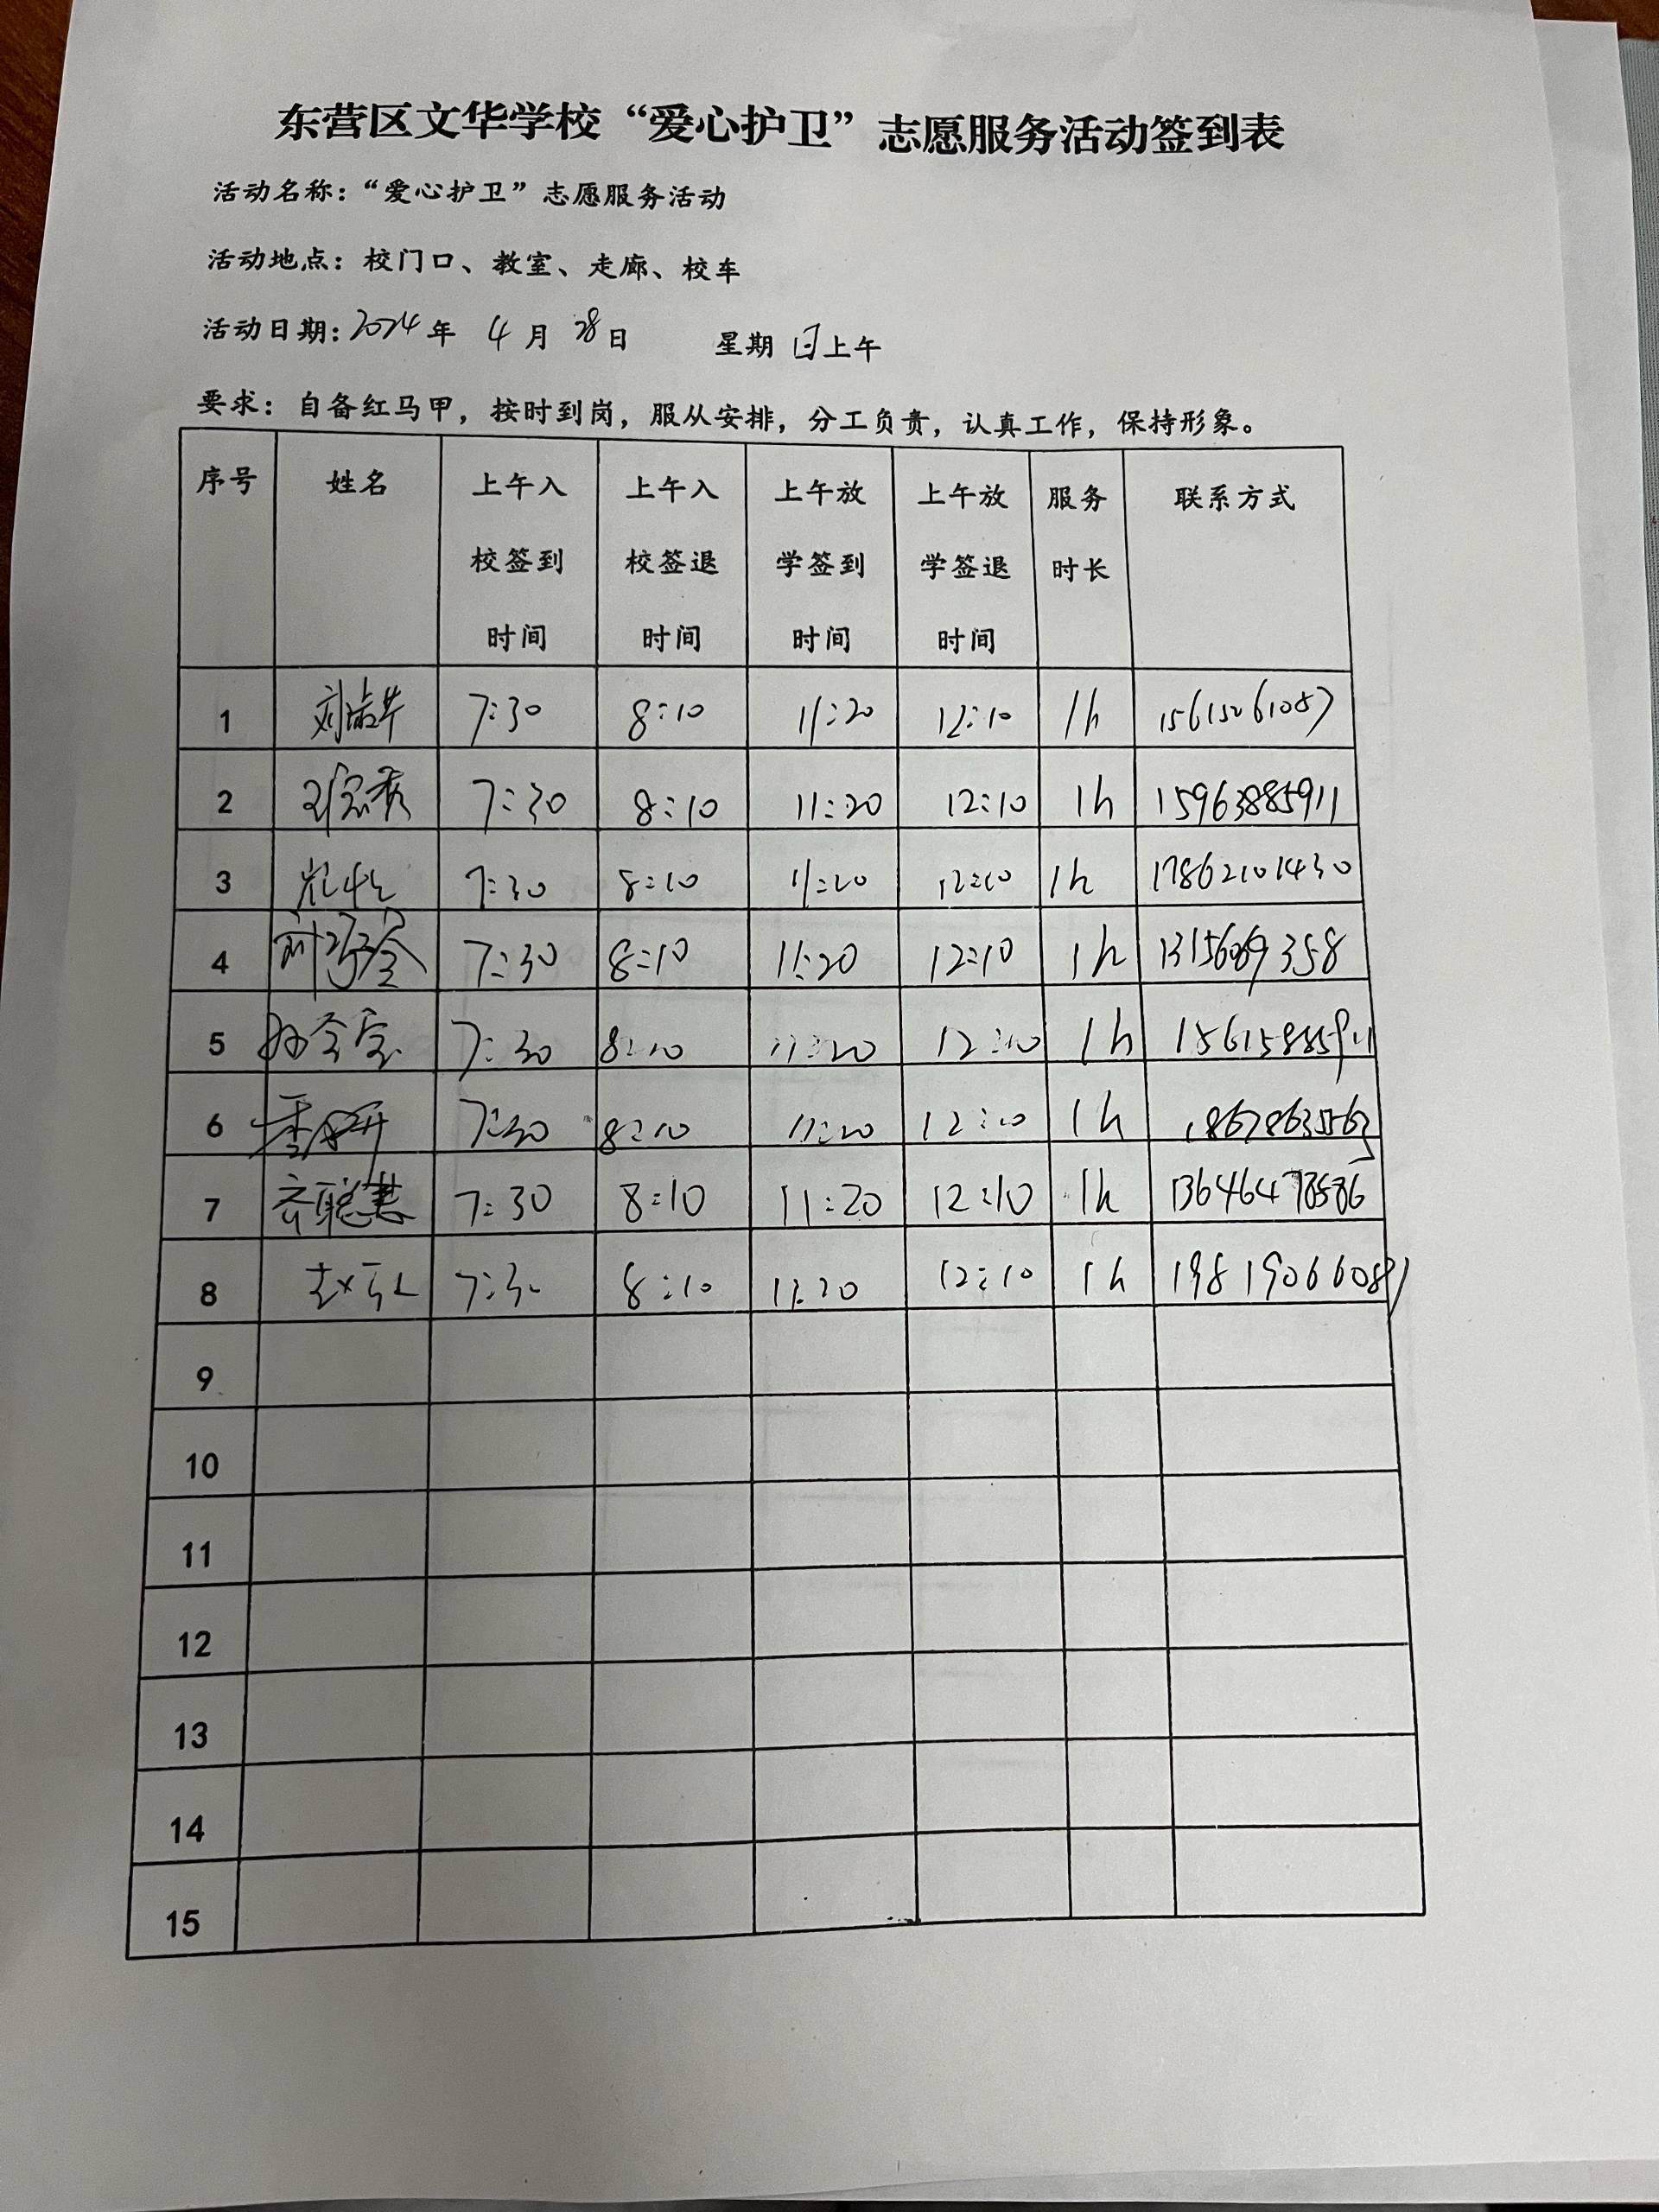 东营区文华学校“爱心护卫”志愿服务活动签到表
活动名称：“爱心护卫”志愿服务活动
活动地点：校门口、教室、走廊、校车
活动日期：2024年 4月 28日 星期日上午
要求：自备红马甲，按时到岗，服从安排，分工负责，认真工作，保持形象。
序号 姓名 上午入校签到时间 上午入校签退时间 上午放学签到时间 上午放学签退时间 服务时长 联系方式
1 7:30 8:10 11:20 12:10 1h 15615261087
2 7:30 8:10 11:20 12:10 1h 15963885911
3 7:30 8:10 11:20 12:10 1h 17862101430
4 7:30 8:10 11:20 12:10 1h
5 7:30 8:10 11:20 12:10 1h 15615885911
6 7:30 8:10 11:20 12:10 1h
7 齐聪慧 7:30 8:10 11:20 12:10 1h
8 7:30 8:10 11:20 12:10 1h
9
10
11
12
13
14
15